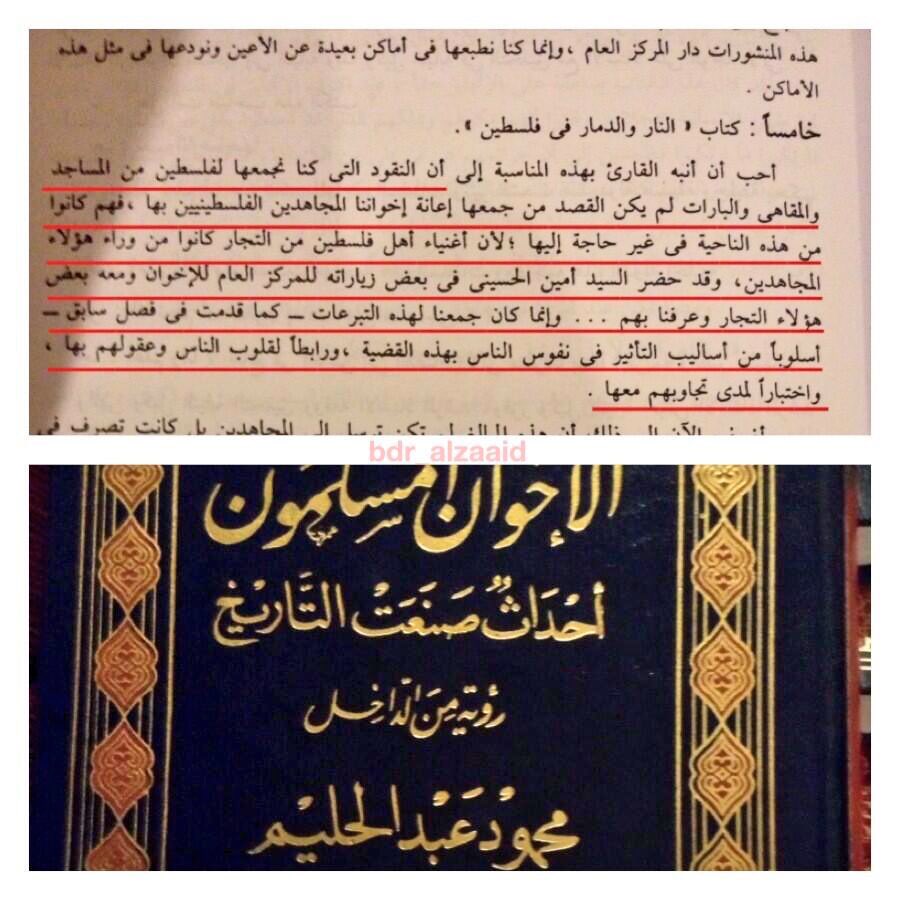 هذه المنشورات دار المركز العام ، وإنما كنا نطبعها فى أماكن بعيدة عن الأعين ونودعها فى مثل هذه
الأماكن .
خامساً : كتاب « النار والدمار فى فلسطين » .
أحب أن أنبه القارئ بهذه المناسبة إلى أن النقود التى كنا نجمعها لفلسطين من المساجد
والمقاهى والبارات لم يكن القصد من جمعها إعانة إخواننا المجاهدين الفلسطينيين بها ، فهم كانوا
من هذه الناحية فى غير حاجة إليها ؛ لأن أغنياء أهل فلسطين من التجار كانوا من وراء هؤلاء
المجاهدين، وقد حضر السيد أمين الحسينى فى بعض زياراته للمركز العام للإخوان ومعه بعض
هؤلاء التجار وعرفنا بهم ... وإنما كان جمعنا لهذه التبرعات ــ كما قدمت فى فصل سابق ــ
أسلوباً من أساليب التأثير فى نفوس الناس بهذه القضية ، ورابطاً لقلوب الناس وعقولهم بها ،
واختباراً لمدى تجاوبهم معها
bdr_alzaaid
الإخوان المسلمون
أحداث صنعت التاريخ
رؤية من الداخل
محمود عبد الحليم